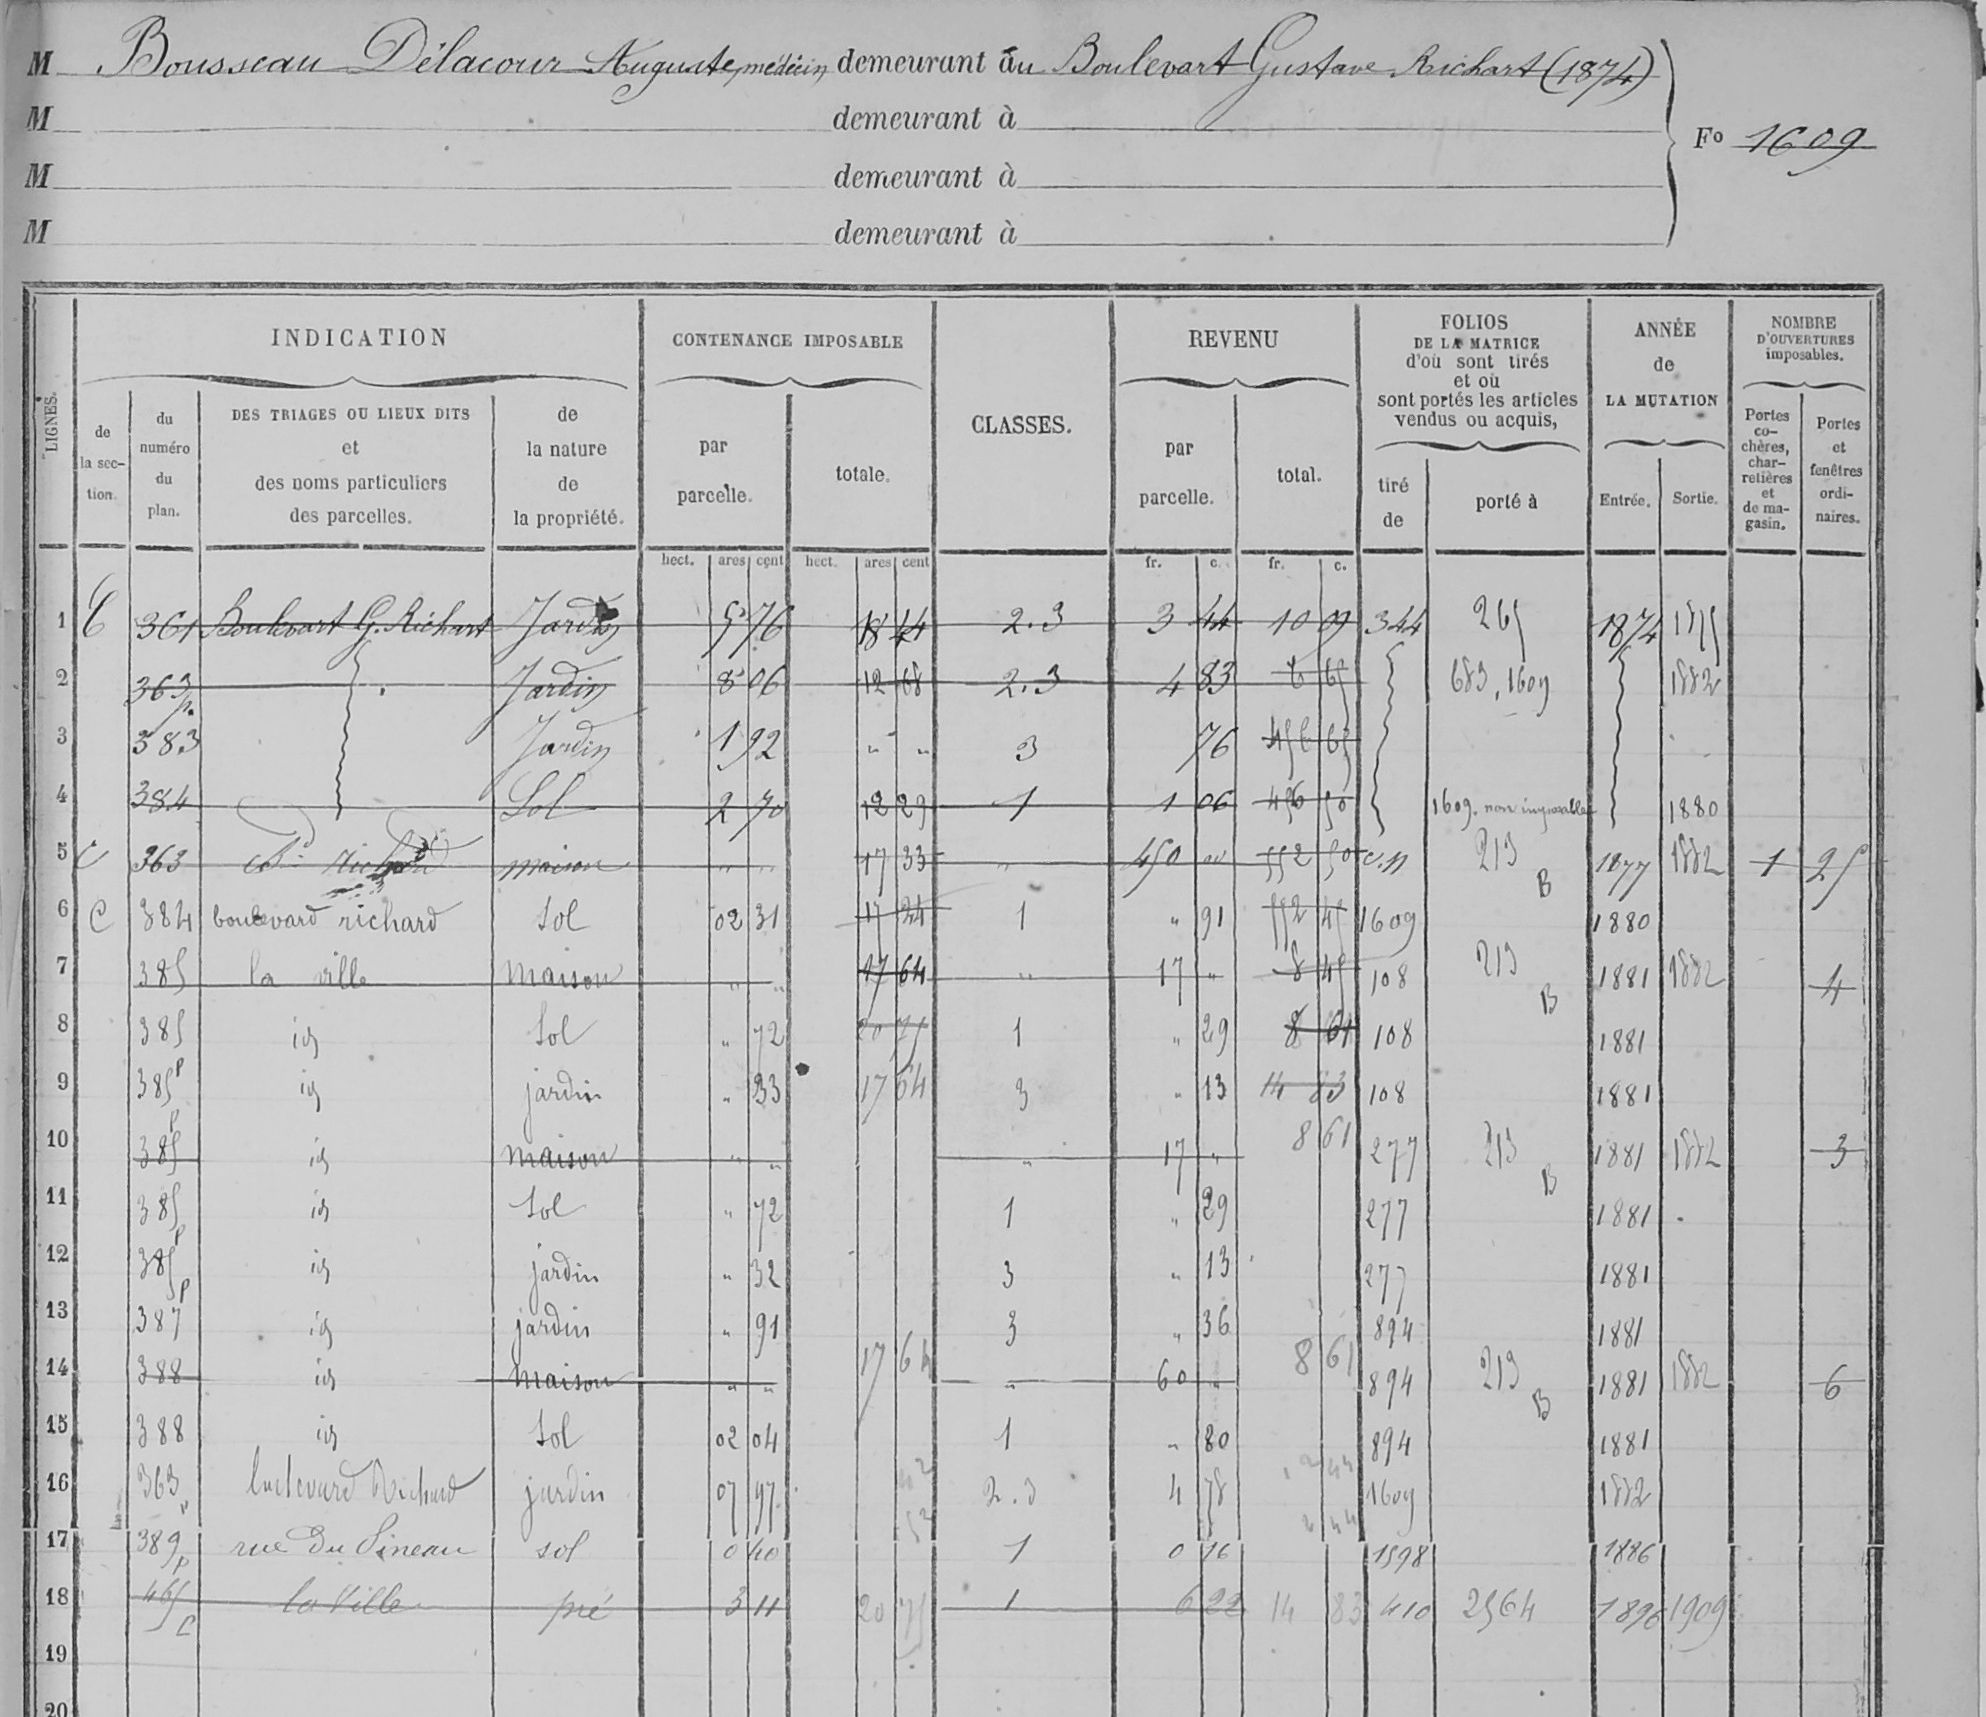 M Bousseau Délacour Auguste, médecin, demeurant au Boulevart Gustave Richart (1874)
M demeurant à
M demeurant à
M demeurant à
Fo 1609
LIGNES.
INDICATION
de la sec- tion.
du numéro du plan.
DES TRIAGES OU LIEUX DITS et des noms particuliers des parcelles.
de la nature de la propriété.
CONTENANCE IMPOSABLE
par parcelle.
totale.
CLASSES.
REVENU
par parcelle.
total.
FOLIOS DE LA MATRICE d'où sont tirés et où sont portés les articles vendus ou acquis,
tiré de
porté à
ANNÉE de LA MUTATION
Entrée.
Sortie.
NOMBRE D'OUVERTURES imposables.
Portes co- chères, char- retières et de ma- gasin.
Portes et fenêtres ordi- naires.
hect. ares cent hect. ares cent fr. c. fr. c.
1 C 361 Boulevart G. Richart Jardin 5 76 18 44 2.3 3 44 10 09 344 265 1874 1875
2 363 p. Jardin 8 06 12 68 2.3 4 83 6 65 683, 1609 1882
3 383 Jardin 1 92 " " 3 76 456 65
4 384 Sol 2 70 12 29 1 1 06 456 50 1609. non imposable 1880
5 C 363 Bd Richard maison " " 17 33 " 450 " 552 50 C.N 213 B 1877 1882 1 25
6 C 384 boulevard richard Sol 02 31 17 24 1 " 91 552 45 1609 1880
7 385 la ville maison " " 17 64 " 17 " 8 45 108 213 B 1881 1882 4
8 385 id Sol " 72 20 75 1 " 29 8 61 108 1881
9 385 p id jardin " 33 17 64 3 " 13 14 83 108 1881
10 385 p id maison " " " 17 " 8 61 277 213 B 1881 1882 3
11 385 p id Sol " 72 1 " 29 277 1881
12 385 p id jardin " 32 3 " 13 277 1881
13 387 id jardin " 91 3 " 36 894 1881
14 388 id maison " " 17 64 " 60 " 8 61 894 213 B 1881 1882 6
15 388 id Sol 02 04 1 " 80 894 1881
16 363 p boulevard Richard jardin 07 97 2.3 4 78 1609 1882
17 389 p rue du Pineau sol 0 40 1 0 16 1598 1886
18 465 C la Ville pré 3 11 20 75 1 6 22 14 83 410 2564 1896 1909
19
20